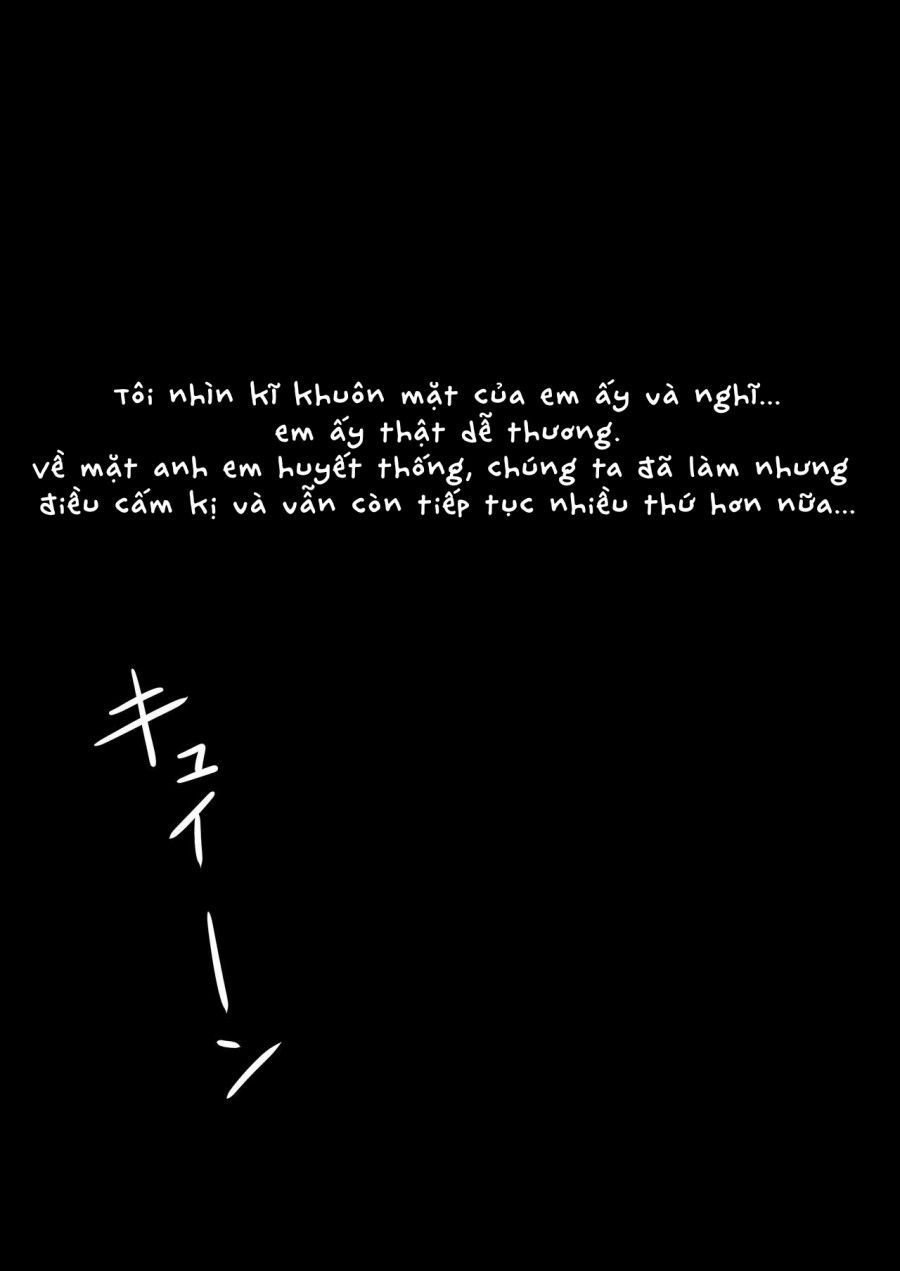 Tôi nhìn kĩ khuôn mặt của em ấy và nghĩ...
em ấy thật dễ thương.
về mặt anh em huyết thống, chúng ta đã làm nhưng
điều cấm kị và vẫn còn tiếp tục nhiều thứ hơn nữa...
キュイーン